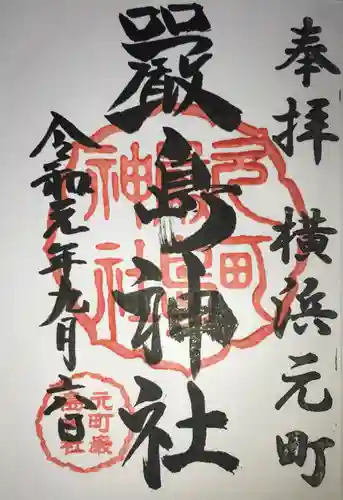 奉拝 横浜元町
嚴島神社
令和元年九月六日
元町嚴島神社
元町嚴島神社